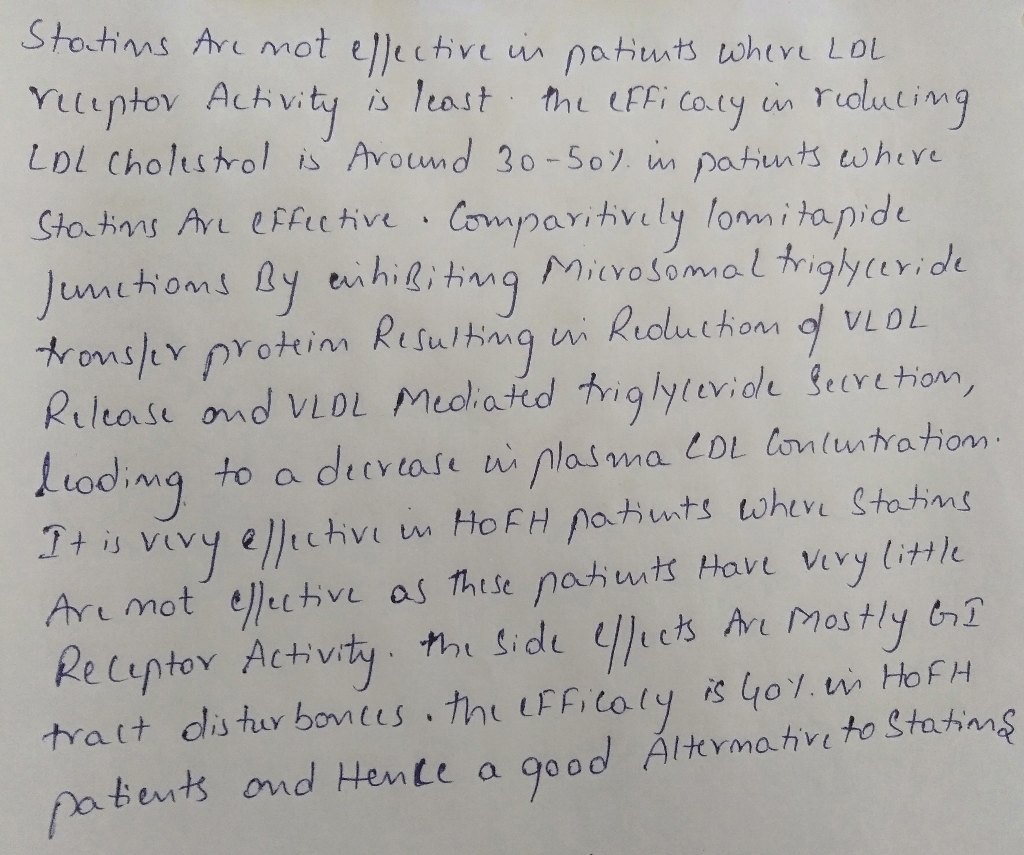 Statins Are not effective in patients where LDL
receptor Activity is least. The efficacy in reducing
LDL cholestrol is Around 30-50% in patients where
Statins Are effective. Comparitively lomitapide
functions By inhibiting Microsomal triglyceride
transfer protein Resulting in Reduction of VLDL
Release and VLDL Mediated triglyceride Secretion,
leading to a decrease in plasma LDL Concentration.
It is very effective in HOFH patients where Statins
Are not effective as these patients Have very little
Receptor Activity. The side effects Are Mostly GI
tract disturbances. The efficacy is 40% in HOFH
patients and Hence a good Alternative to Statins